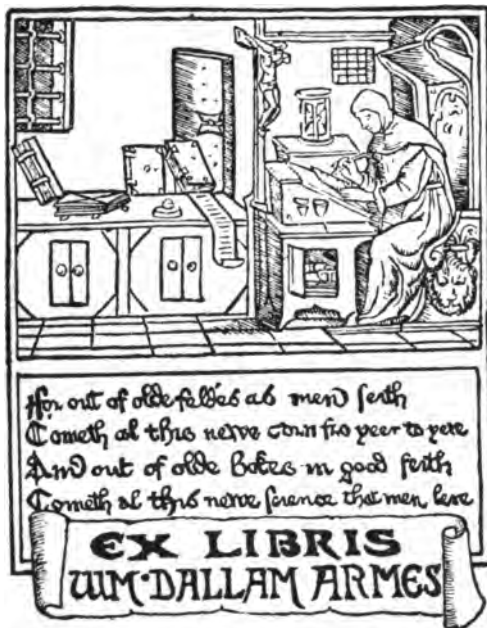 For out of olde feldes as men seith
Cometh al this newe corn fro yeer to yere
And out of olde bokes in good feith
Cometh al this newe science that men lere
EX LIBRIS
WM·DALLAM ARMES